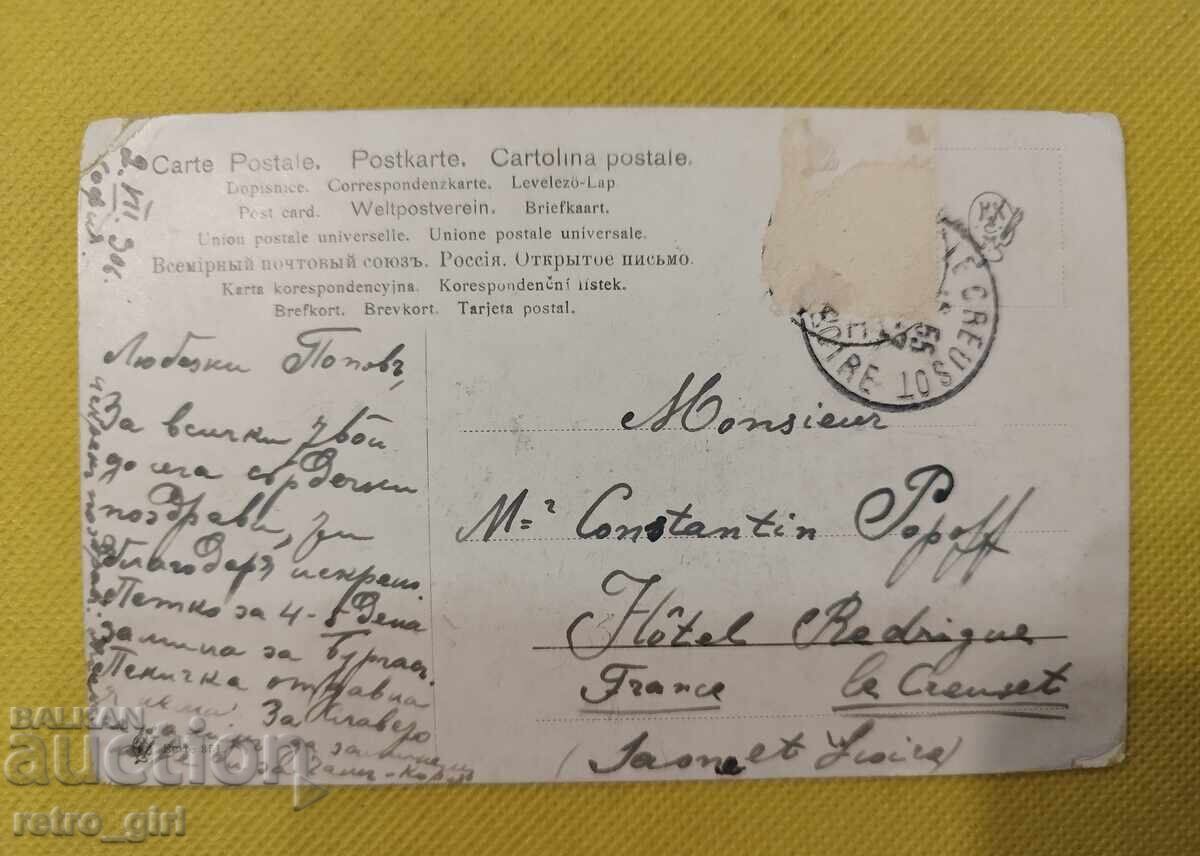 Carte Postale. Postkarte. Cartolina postale.
Dopisnice. Correspondenzkarte. Levelező-Lap
Post card. Weltpostverein. Briefkaart.
Union postale universelle. Unione postale universale.
Всемірный почтовый союзъ. Россія. Открытое письмо.
Karta korespondencyjna. Korespondenční lístek.
Brefkort. Brevkort. Tarjeta postal.
2. VII. 906.
София.
LE CREUSOT
LOIRE
55
Любезни Поповъ,
За всички твои
до сега сърдечни
поздрави, ти
благодаря искрено.
Петко за 4-5 дена
замина за Бургасъ.
Пеничка отдавна
За
искрен
Monsieur
Mr Constantin Popoff
Hôtel Rodrigue
France le Creuset
(Saone et Loire)
Serie
BALKAN
auction
retro_girl